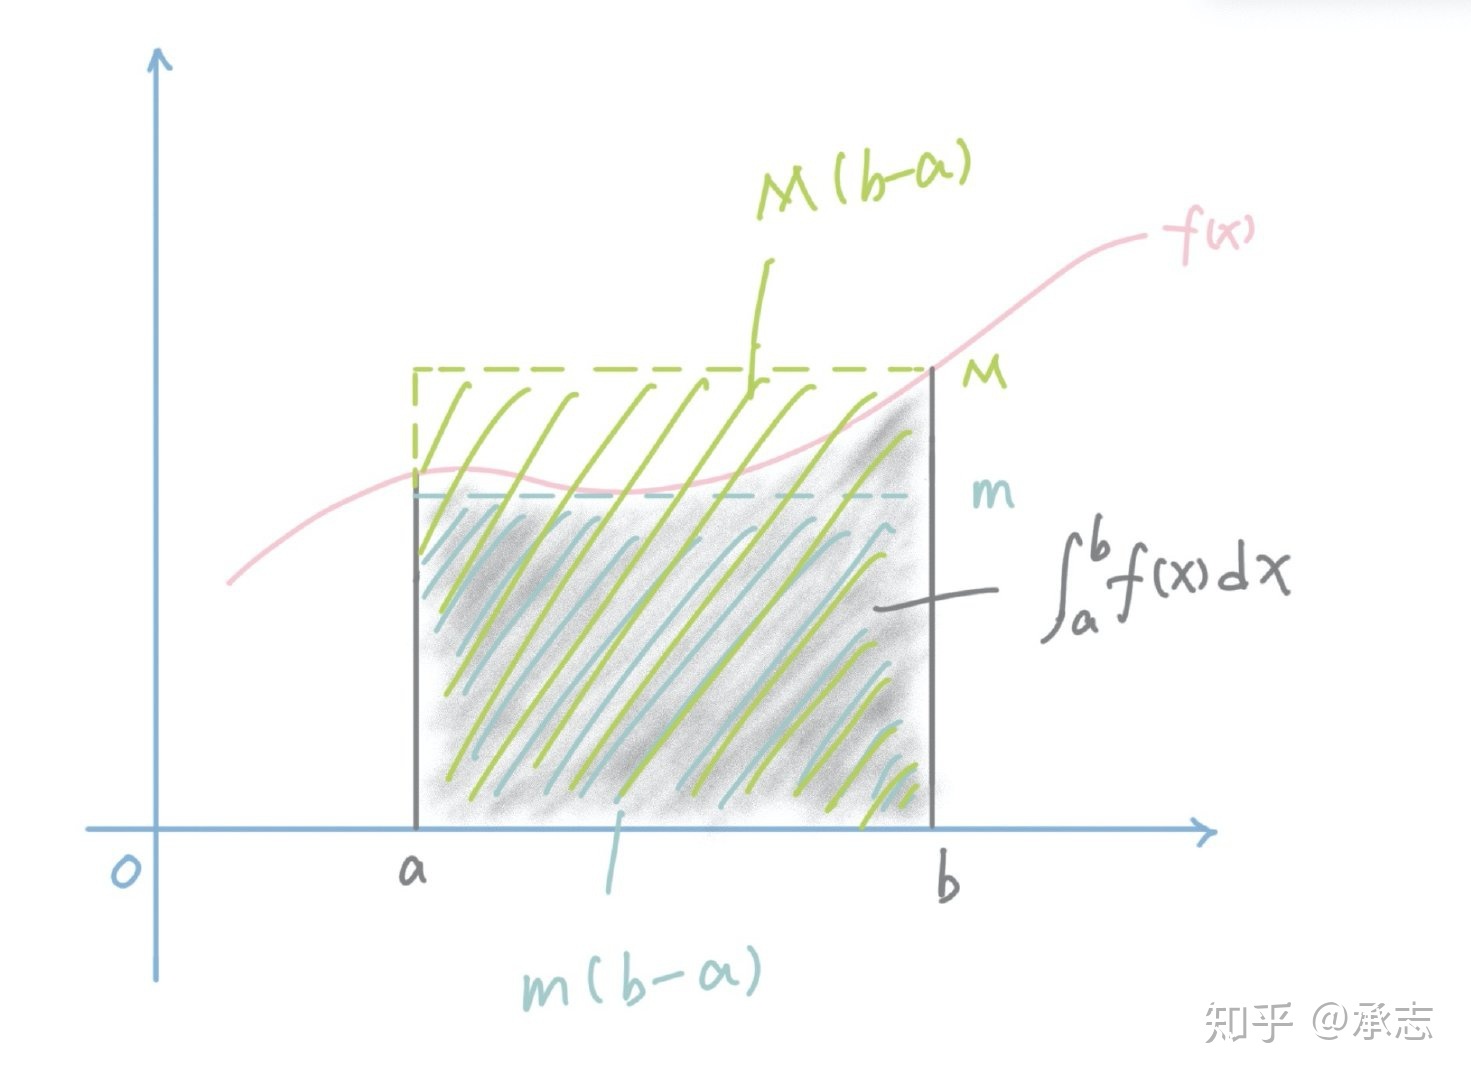 M(b-a)
f(x)
M
m
∫_a^b f(x)dx
0
a
b
m(b-a)
知乎 @承志